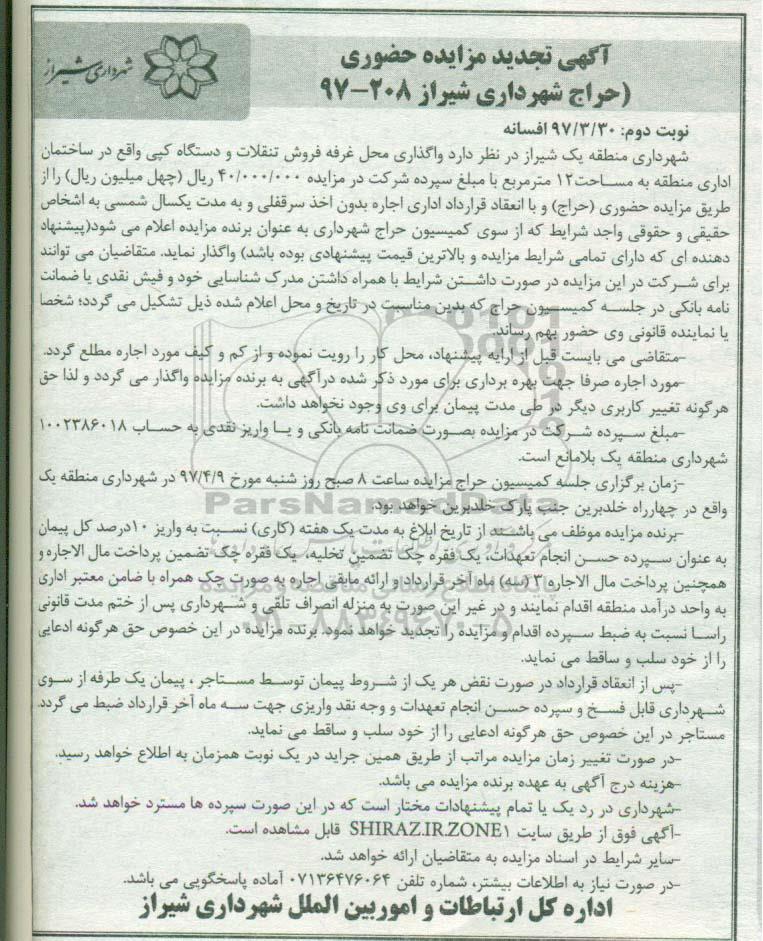 شهرداری شیراز
آگهی تجدید مزایده حضوری
(حراج شهرداری شیراز ۲۰۸-۹۷
نوبت دوم: ۹۷/۳/۳۰ افسانه
شهرداری منطقه یک شیراز در نظر دارد واگذاری محل غرفه فروش تنقلات و دستگاه کپی واقع در ساختمان
اداری منطقه به مساحت۱۲ مترمربع با مبلغ سپرده شرکت در مزایده ۴۰/۰۰۰/۰۰۰ ریال (چهل میلیون ریال) را از
طریق مزایده حضوری (حراج) و با انعقاد قرارداد اداری اجاره بدون اخذ سرقفلی و به مدت یکسال شمسی به اشخاص
حقیقی و حقوقی واجد شرایط که از سوی کمیسیون حراج شهرداری به عنوان برنده مزایده اعلام می شود(پیشنهاد
دهنده ای که دارای تمامی شرایط مزایده و بالاترین قیمت پیشنهادی بوده باشد) واگذار نماید. متقاضیان می توانند
برای شرکت در این مزایده در صورت داشتن شرایط با همراه داشتن مدرک شناسایی خود و فیش نقدی یا ضمانت
نامه بانکی در جلسه کمیسیون حراج که بدین مناسبت در تاریخ و محل اعلام شده ذیل تشکیل می گردد؛ شخصا
یا نماینده قانونی وی حضور بهم رساند.
-متقاضی می بایست قبل از ارایه پیشنهاد، محل کار را رویت نموده و از کم و کیف مورد اجاره مطلع گردد.
-مورد اجاره صرفا جهت بهره برداری برای مورد ذکر شده درآگهی به برنده مزایده واگذار می گردد و لذا حق
هرگونه تغییر کاربری دیگر در طی مدت پیمان برای وی وجود نخواهد داشت.
-مبلغ سپرده شرکت در مزایده بصورت ضمانت نامه بانکی و یا واریز نقدی به حساب ۱۰۰۲۳۸۶۰۱۸
شهرداری منطقه یک بلامانع است.
-زمان برگزاری جلسه کمیسیون حراج مزایده ساعت ۸ صبح روز شنبه مورخ ۹۷/۴/۹ در شهرداری منطقه یک
واقع در چهارراه خلدبرین جنب پارک خلدبرین خواهد بود.
ParsNamadData
-برنده مزایده موظف می باشند از تاریخ ابلاغ به مدت یک هفته (کاری) نسبت به واریز ۱۰درصد کل پیمان
به عنوان سپرده حسن انجام تعهدات، یک فقره چک تضمین تخلیه، یک فقره چک تضمین پرداخت مال الاجاره و
همچنین پرداخت مال الاجاره ۳ (سه) ماه آخر قرارداد و ارائه مابقی اجاره به صورت چک همراه با ضامن معتبر اداری
به واحد درآمد منطقه اقدام نمایند و در غیر این صورت به منزله انصراف تلقی و شهرداری پس از ختم مدت قانونی
راسا نسبت به ضبط سپرده اقدام و مزایده را تجدید خواهد نمود. برنده مزایده در این خصوص حق هرگونه ادعایی
را از خود سلب و ساقط می نماید.
-پس از انعقاد قرارداد در صورت نقض هر یک از شروط پیمان توسط مستاجر ، پیمان یک طرفه از سوی
شهرداری قابل فسخ و سپرده حسن انجام تعهدات و وجه نقد واریزی جهت سه ماه آخر قرارداد ضبط می گردد.
مستاجر در این خصوص حق هرگونه ادعایی را از خود سلب و ساقط می نماید.
-در صورت تغییر زمان مزایده مراتب از طریق همین جراید در یک نوبت همزمان به اطلاع خواهد رسید.
-هزینه درج آگهی به عهده برنده مزایده می باشد.
-شهرداری در رد یک یا تمام پیشنهادات مختار است که در این صورت سپرده ها مسترد خواهد شد.
-آگهی فوق از طریق سایت SHIRAZ.IR.ZONE۱ قابل مشاهده است.
-سایر شرایط در اسناد مزایده به متقاضیان ارائه خواهد شد.
-در صورت نیاز به اطلاعات بیشتر، شماره تلفن ۰۷۱۳۶۴۷۶۰۶۴ آماده پاسخگویی می باشد.
اداره کل ارتباطات و اموربین الملل شهرداری شیراز